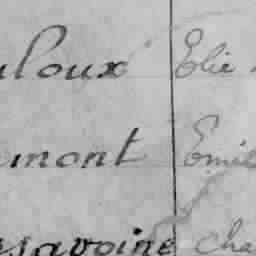 uloux Elie
umont Emile
ssavoine Cha